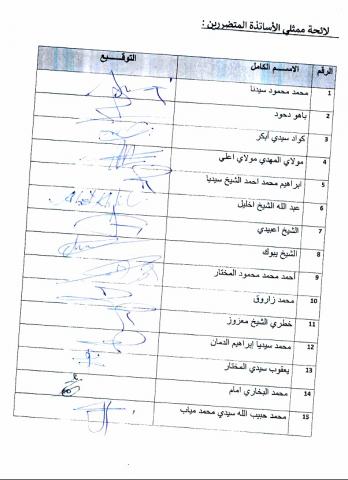 لائحة ممثلي الأساتذة المتضررين :
الرقم الاسم الكامل التوقيع
1 محمد محمود سيدنا
2 باهو دحود
3 كواد سيدي أبكر
4 مولاي المهدي مولاي اعلي
5 ابراهيم محمد احمد الشيخ سيديا
6 عبد الله الشيخ اخليل
7 الشيخ اعبيدي
8 الشيخ ببوك
9 أحمد محمد محمود المختار
10 محمد زاروق
11 خطري الشيخ معزوز
12 محمد سيديا إبراهيم الدمان
13 يعقوب سيدي المختار
14 محمد البخاري امام
15 محمد حبيب الله سيدي محمد مياب